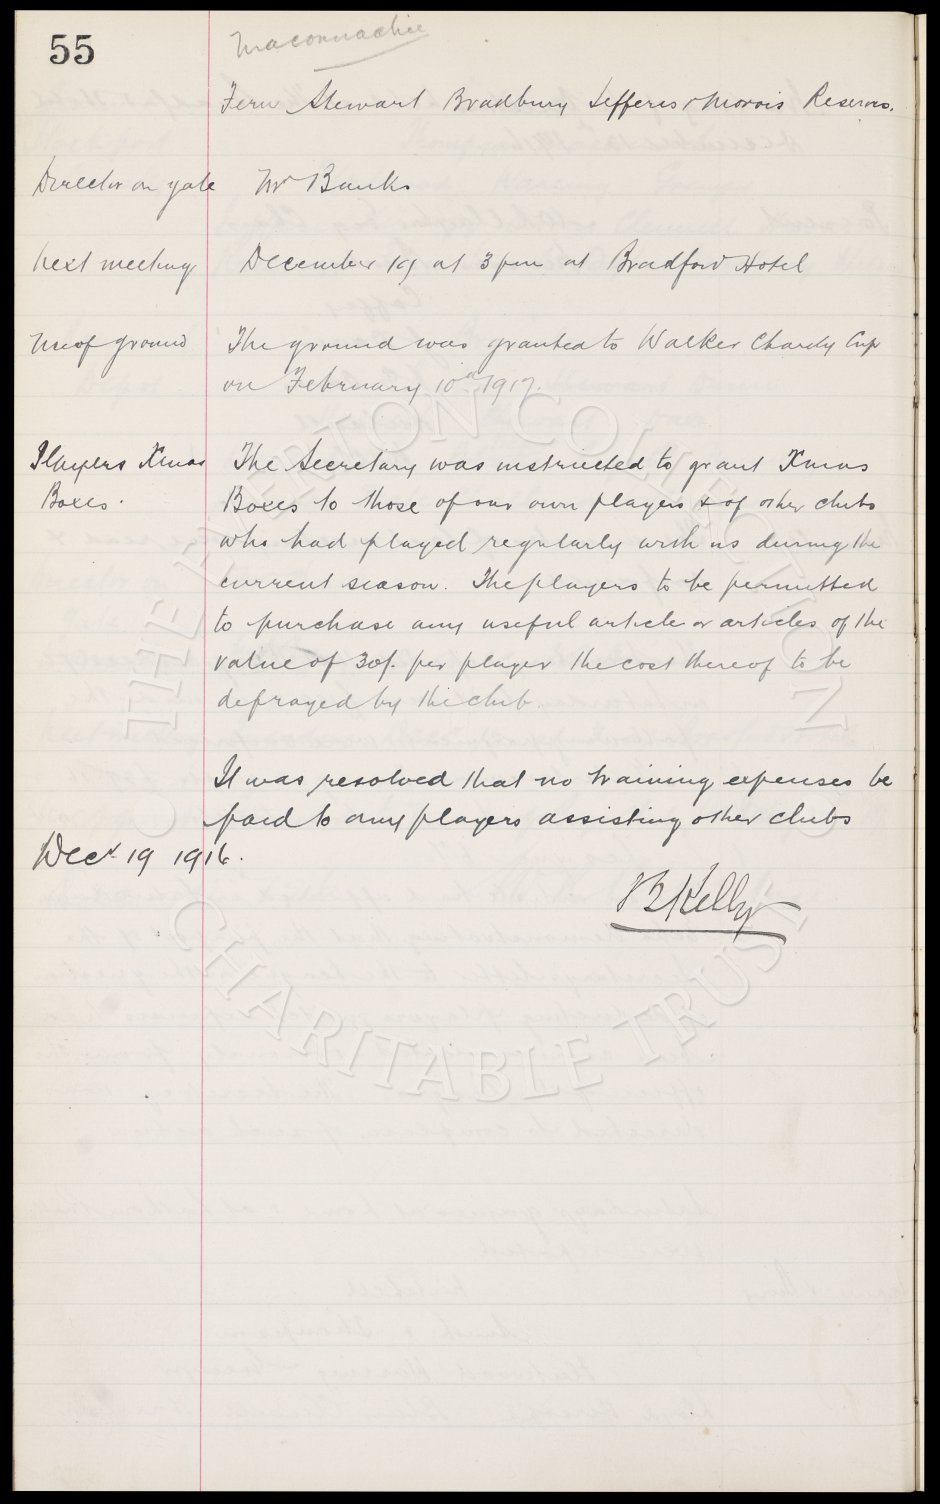 55
Maconnachie
Fern Stewart Bradbury Jefferis & Morris Reserves.
Director on gate Mr Banks
Next meeting December 19 at 3 pm at Bradford Hotel
Use of ground The ground was granted to Walker Charity Cup
on February 10th 1917.
Players Xmas The Secretary was instructed to grant Xmas
Boxes. Boxes to those of our own players & of other clubs
who had played regularly with us during the
current season. The players to be permitted
to purchase any useful article or articles of the
value of 30/- per player the cost thereof to be
defrayed by the club.
It was resolved that no training expenses be
paid to any players assisting other clubs
Decr 19 1916.
B Kelly
© THE EVERTON COLLECTION CHARITABLE TRUST